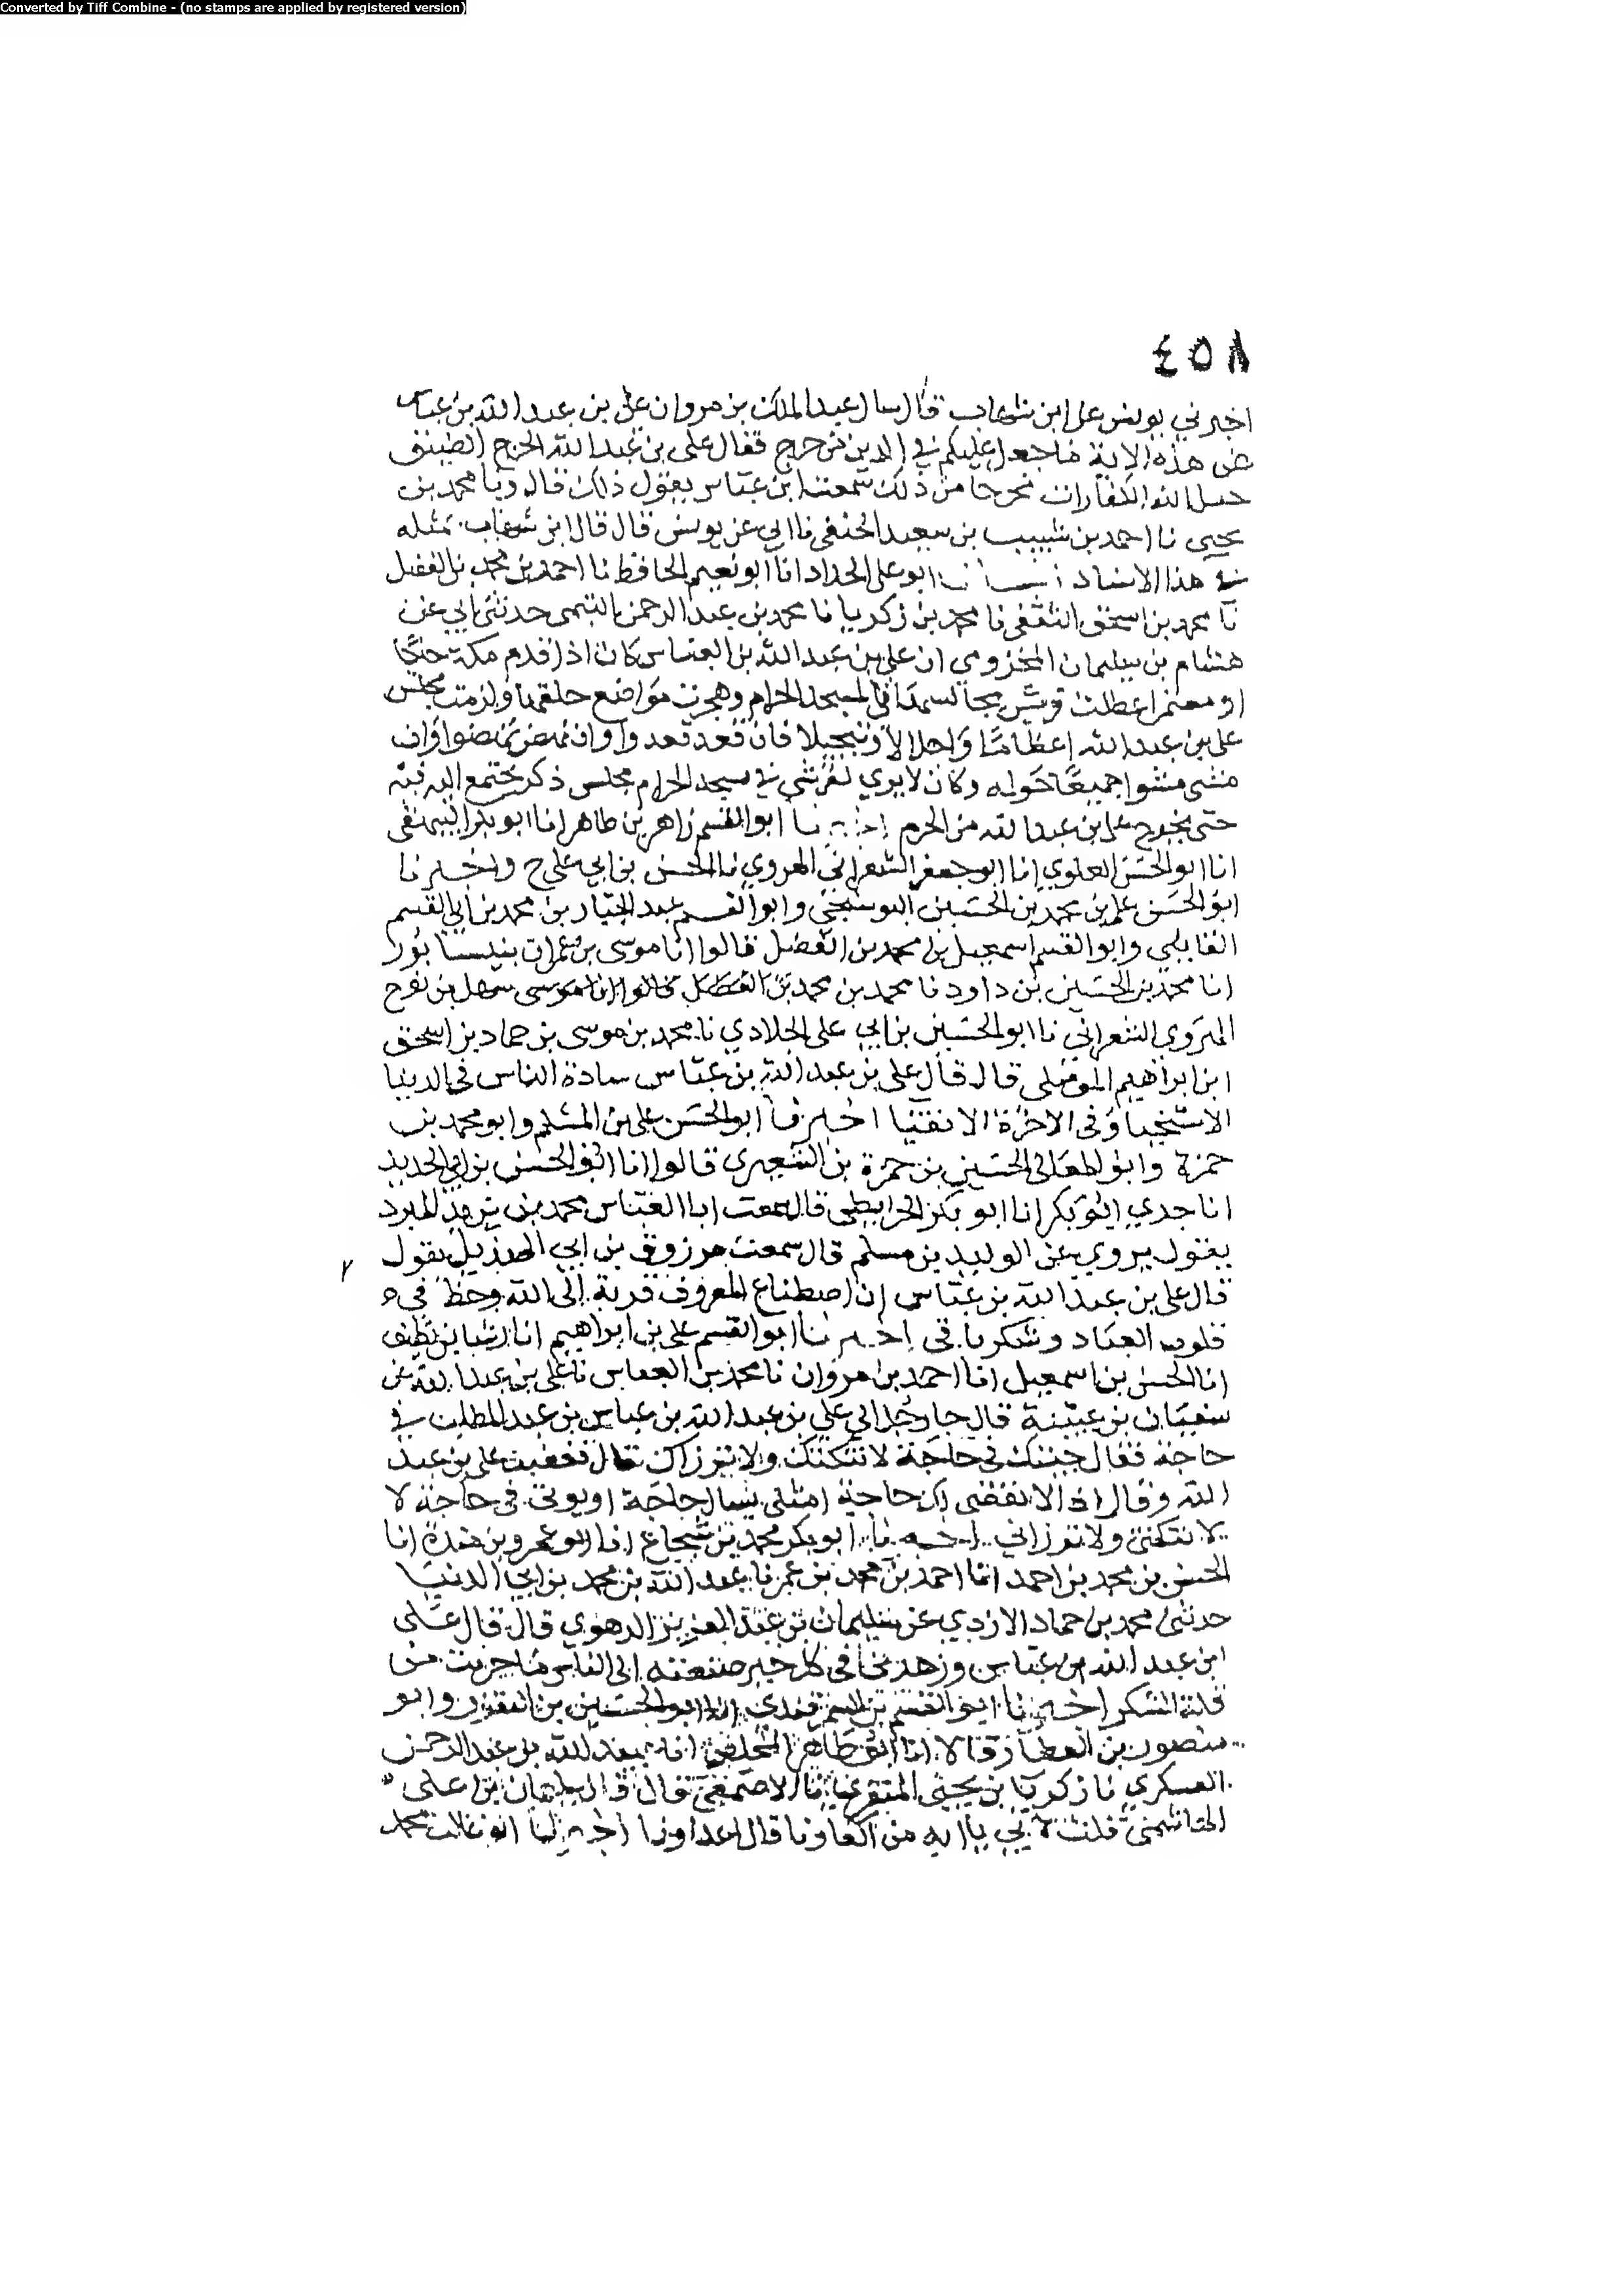 Converted by Tiff Combine - (no stamps are applied by registered version)
٤٥٨
اخبرني يونس عن ابن شهاب قال سال عبد الملك بن مروان علي بن عبد الله بن عباس
عن هذه الاية ما جعل عليكم في الدين من حرج فقال علي بن عبد الله الحرج الضيق
جعل الله الكفارات مخرجا من ذلك سمعت ابن عباس يقول ذلك قال ونا محمد بن
يحيى نا احمد بن شبيب بن سعيد الحنفي نا ابي عن يونس قال قال ابن شهاب بمثله
هذا الاسناد ابو علي الحداد انا ابو نعيم الحافظ نا احمد بن محمد بن الفضل
نا محمد بن اسحق الثقفي نا محمد بن زكريا نا محمد بن عبد الرحمن التيمي حدثني ابي عن
هشام بن سليمان المخزومي ان علي بن عبد الله بن العباس كان اذا قدم مكة حاجا
او معتمرا عطلت قريش مجالسها في المسجد الحرام وهجرت مواضع حلقها ولزمت مجلس
علي بن عبد الله اعظاما واجلالا وتبجيلا فان قعد قعدوا وان نهض نهضوا وان
مشى مشوا جميعا حوله وكان لا يرى لقرشي في مسجد الحرام مجلس ذكر يجتمع اليه فيه
حتى يخرج علي بن عبد الله من الحرم اخبرنا ابو القسم زاهر بن طاهر انا ابو بكر البيهقي
انا ابو الحسن العلوي انا ابو جعفر الشعراني الهروي نا الحسن بن ابي علي ح واخبرنا
ابو الحسن علي بن محمد بن الحسين البوشنجي وابو القسم عبد الجبار بن محمد بن ابي القسم
القايني وابو القسم اسمعيل بن محمد بن الفضل قالوا انا موسى بن عمران بنيسابور
انا محمد بن الحسين بن داود نا محمد بن محمد بن سهل بن نوح
الهروي الشعراني نا ابو الحسين بن ابي علي الخلادي نا محمد بن موسى بن حماد بن اسحق
ابن ابراهيم الموصلي قال قال علي بن عبد الله بن عباس سادة الناس في الدنيا
الاسخيا وفي الاخرة الاتقيا اخبرنا ابو الحسن علي بن المسلم وابو محمد بن
حمزة وابو المعالي الحسين بن حمزة بن الشعيري قالوا انا ابو الحسن بن ابي الحديد
انا جدي ابو بكر انا ابو بكر الخرايطي قال سمعت ابا العباس محمد بن يزيد المبرد
يقول يروي عن الوليد بن مسلم قال سمعت مرزوق بن ابي الهذيل يقول
قال علي بن عبد الله بن عباس ان اصطناع المعروف قربة الى الله وحظ في
قلوب العباد وشكر باقي اخبرنا ابو القسم علي بن ابراهيم انا رشا بن نظيف
انا الحسن بن اسمعيل انا احمد بن مروان نا محمد بن العباس نا علي بن عبد الله عن
سفيان بن عيينة قال جا رجل الى علي بن عبد الله بن عباس بن عبد المطلب في
حاجة فقال جيتك في حاجة لا تنكئك ولا ترزاك قال فغضب علي بن عبد
الله وقال اذا لا تقضى لك حاجة امثلي يسال حاجة او يوتى في حاجة لا
لا تنكئني ولا ترزاني اخبرنا ابو بكر محمد بن شجاع انا ابو عمرو بن مندة انا
الحسن بن محمد بن احمد انا احمد بن محمد بن عمر نا عبد الله بن محمد بن ابي الدنيا
حدثني محمد بن حماد الازدي عن سليمان بن عبد العزيز الزهري قال قال علي
ابن عبد الله بن عباس وزهدنا في كل خير صنعته الى الناس ما جربت من
قلة الشكر اخبرنا ابو القسم بن السمرقندي انا ابو الحسين بن النقور وابو
منصور بن العطار قالا انا ابو طاهر المخلص انا عبد الله بن عبد الرحمن
العسكري نا زكريا بن يحيى المنقري نا الاصمعي قال قال سليمان بن علي
الهاشمي قلت لابي يا ابه من اكفاونا قال اعداونا اخبرنا ابو غالب محمد